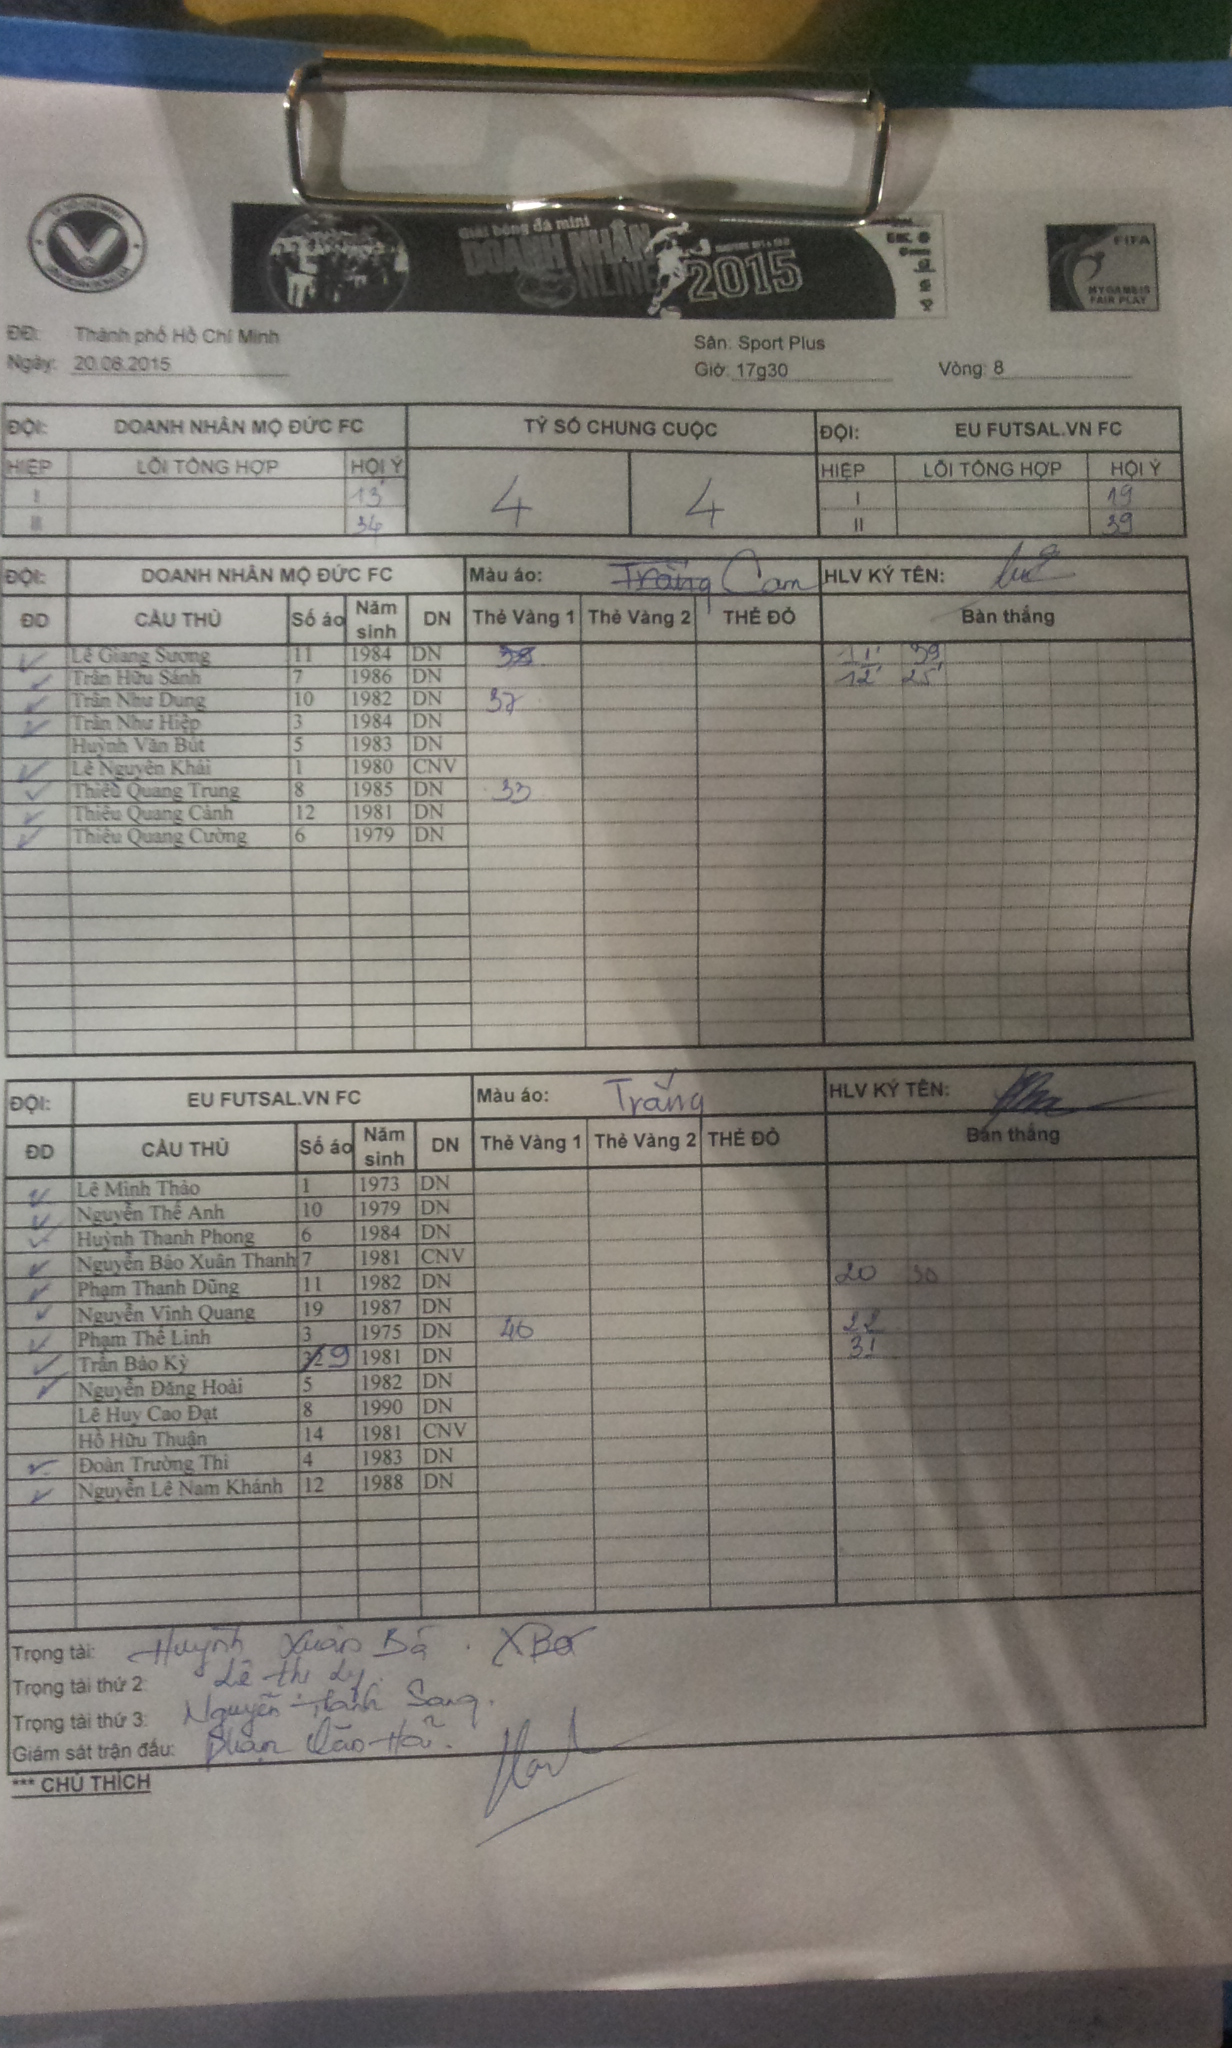 Giải bóng đá mini
DOANH NHÂN
ONLINE
2015
FIFA
MY GAME IS
FAIR PLAY
ĐĐ: Thành phố Hồ Chí Minh Sân: Sport Plus
Ngày: 20.08.2015 Giờ: 17g30 Vòng: 8
ĐỘI: DOANH NHÂN MỘ ĐỨC FC TỶ SỐ CHUNG CUỘC ĐỘI: EU FUTSAL.VN FC
HIỆP LỖI TỔNG HỢP HỘI Ý 4 4 HIỆP LỖI TỔNG HỢP HỘI Ý
I 13' I 19
II 34 II 39
ĐỘI: DOANH NHÂN MỘ ĐỨC FC Màu áo: Trắng Cam HLV KÝ TÊN:
ĐD CẦU THỦ Số áo Năm sinh DN Thẻ Vàng 1 Thẻ Vàng 2 THẺ ĐỎ Bàn thắng
Lê Giang Sương 11 1984 DN 38 11' 39'
Trần Hữu Sánh 7 1986 DN 12' 25'
Trần Như Dung 10 1982 DN 37
Trần Như Hiệp 3 1984 DN
Huỳnh Văn Bút 5 1983 DN
Lê Nguyên Khải 1 1980 CNV
Thiều Quang Trung 8 1985 DN 33
Thiều Quang Cảnh 12 1981 DN
Thiều Quang Cường 6 1979 DN
ĐỘI: EU FUTSAL.VN FC Màu áo: Trắng HLV KÝ TÊN:
ĐD CẦU THỦ Số áo Năm sinh DN Thẻ Vàng 1 Thẻ Vàng 2 THẺ ĐỎ Bàn thắng
Lê Minh Thảo 1 1973 DN
Nguyễn Thế Anh 10 1979 DN
Huỳnh Thanh Phong 6 1984 DN
Nguyễn Bảo Xuân Thanh 7 1981 CNV
Phạm Thanh Dũng 11 1982 DN 20 30
Nguyễn Vinh Quang 19 1987 DN
Phạm Thế Linh 3 1975 DN 40 22
Trần Bảo Kỳ 9 1981 DN 31
Nguyễn Đăng Hoài 5 1982 DN
Lê Huy Cao Đạt 8 1990 DN
Hồ Hữu Thuận 14 1981 CNV
Đoàn Trường Thi 4 1983 DN
Nguyễn Lê Nam Khánh 12 1988 DN
Trọng tài: Huỳnh Xuân Bá
Trọng tài thứ 2: Lê Thị Ly
Trọng tài thứ 3: Nguyễn Thanh Sang.
Giám sát trận đấu: Phan
*** CHÚ THÍCH